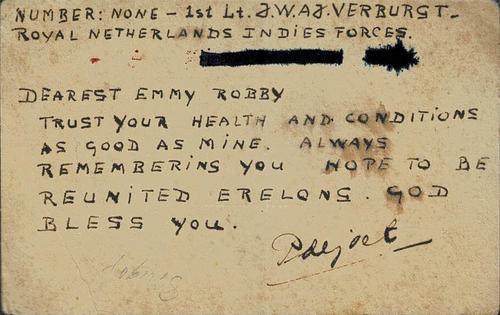 NUMBER: NONE - 1st Lt. J.W.A.J. VERBURGT -
ROYAL NETHERLANDS INDIES FORCES.
DEAREST EMMY ROBBY
TRUST YOUR HEALTH AND CONDITIONS
AS GOOD AS MINE. ALWAYS
REMEMBERING YOU HOPE TO BE
REUNITED ERELONG. GOD
BLESS YOU.